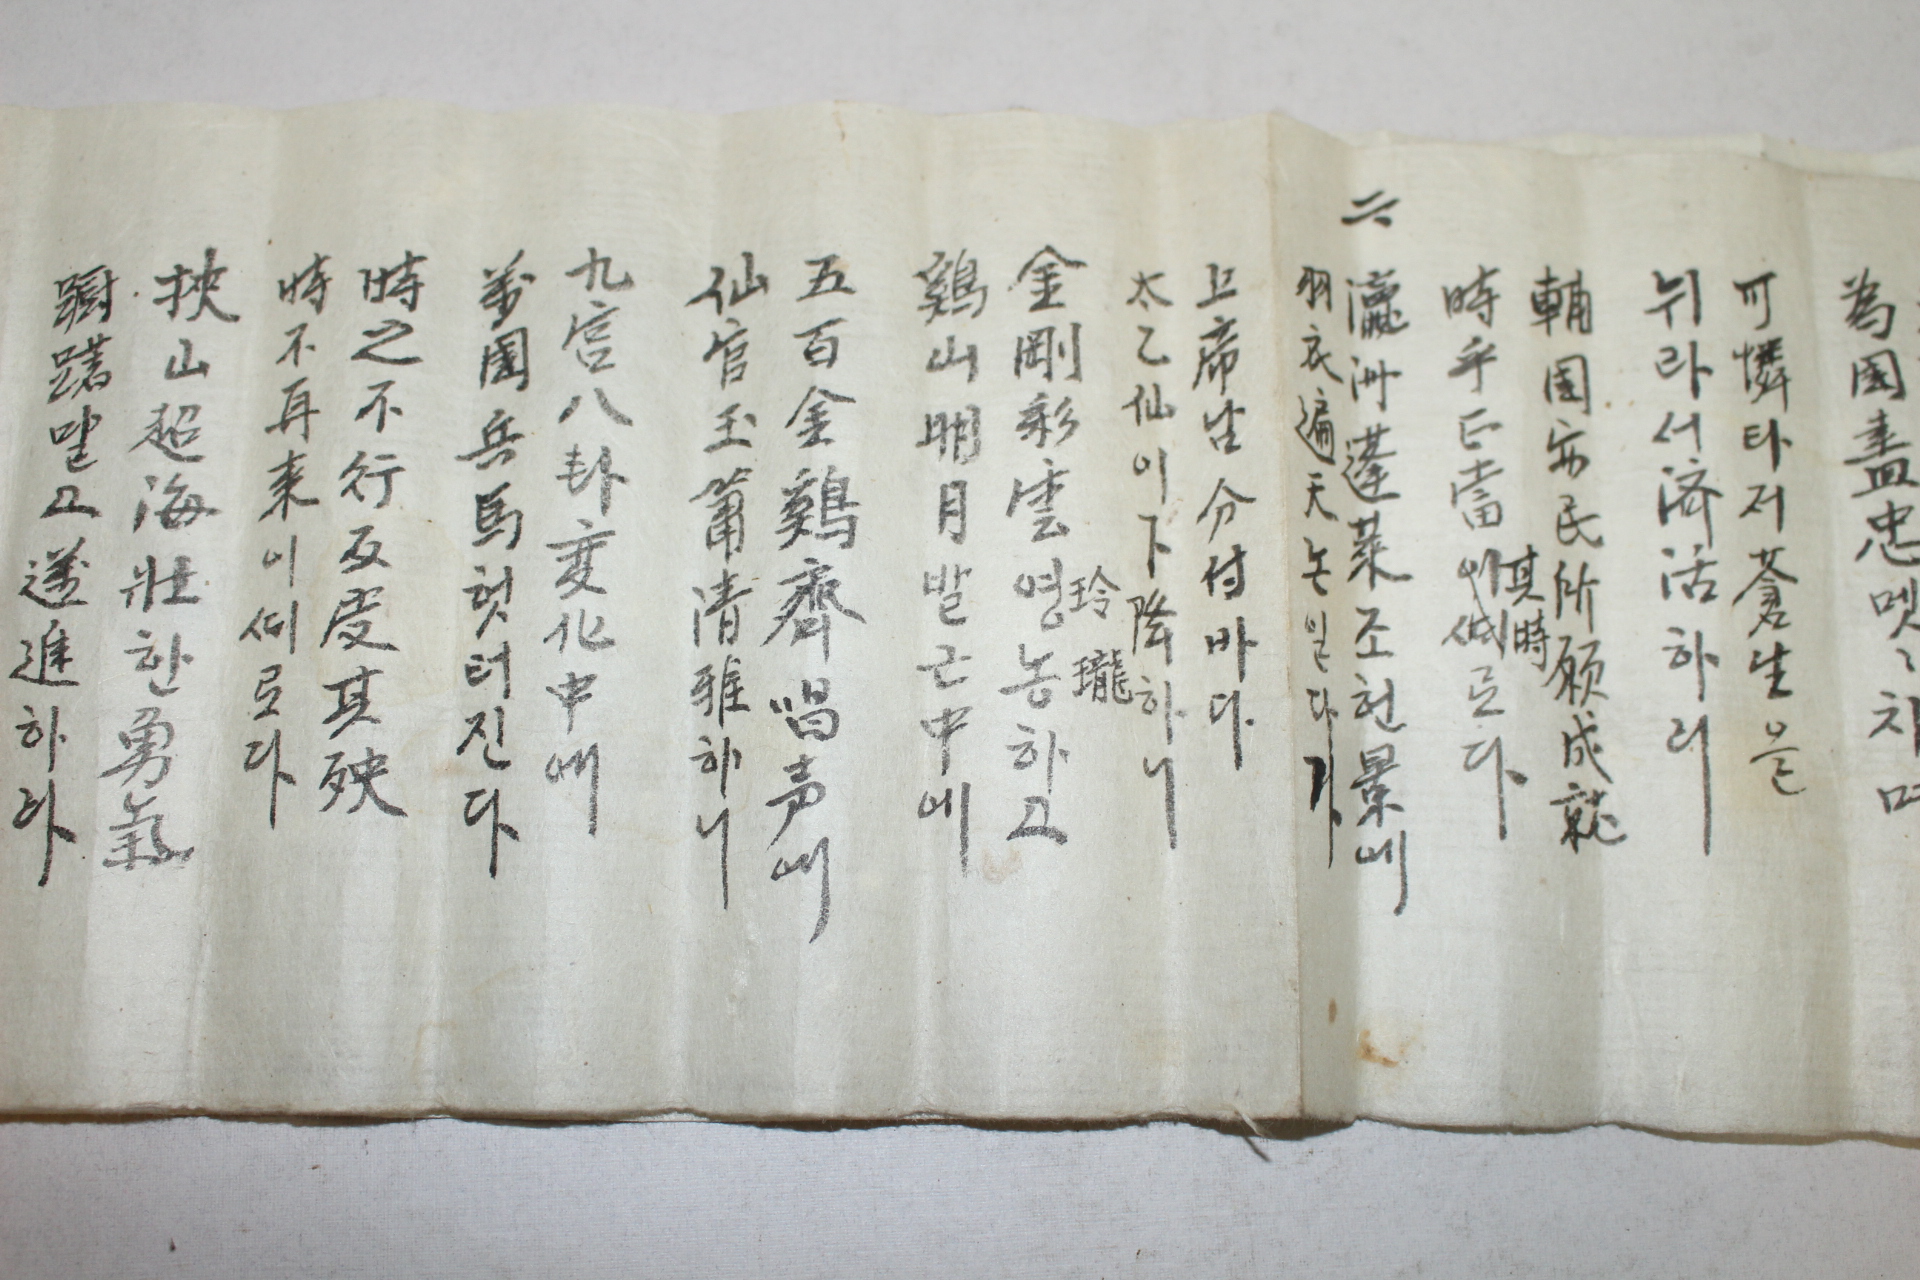 為国盡忠
可憐타저蒼生을
뉘라서済活하리
輔国安民所願成就
時乎正当其時로다
六
瀛洲蓬萊조헌景에
羽衣遍天노닐다가
上帝님分付바다
太乙仙이下降하니
金剛彩雲영농하고
玲瓏
鷄山明月발근中에
五百金鷄齊唱声에
仙官玉簫清雅하니
九宮八卦変化中에
萬国兵馬헛터진다
時之不行反受其殃
時不再来이씨로다
挾山超海壯한勇氣
躕躇말고遂進하라